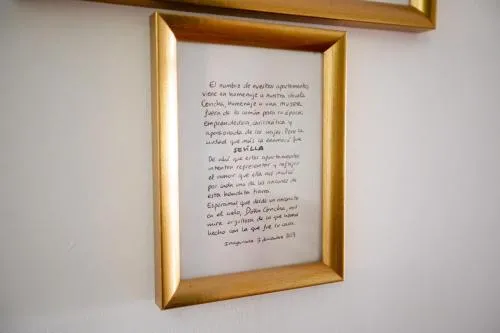 El nombre de nuestros apartamentos
viene en homenaje a nuestra abuela
Concha, homenaje a una mujer
fuera de lo común para su época,
emprendedora, carismática y
apasionada de los viajes. Pero la
ciudad que más la enamoró fue
SEVILLA
De ahí que estos apartamentos
intenten representar y reflejar
el amor que ella nos inculcó
por cada uno de los rincones de
esta bendita tierra.
Esperamos que desde un rinconcito
en el cielo, Doña Concha, nos
mire orgullosa de lo que hemos
hecho con la que fue tu casa.
Inaugurado 7 diciembre